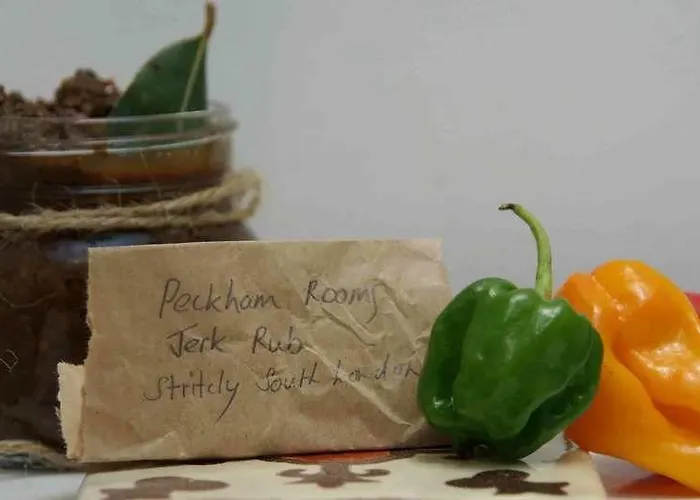 Peckham Rooms
Jerk Rub
Stritcly South London